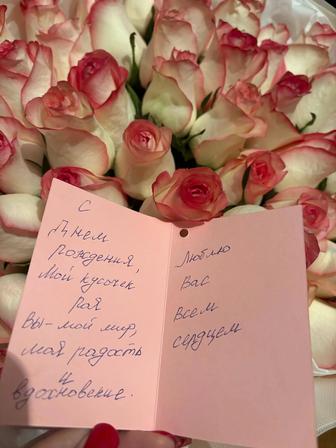 С
Днем
рождения,
Мой кусочек
рая
Вы - мой мир,
моя радость
и
вдохновение.
Люблю
Вас
всем
сердцем